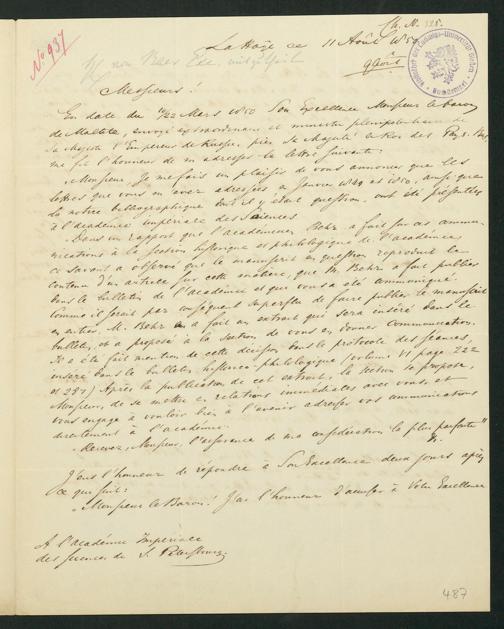 No 937
Ch. N. 325.
La Haye ce 11 Août 1850
Messieurs!
En date du 10/22 Mars 1850 Son Excellence Monsieur le baron
de Maltitz, envoyé extraordinaire et ministre plénipotentiaire de
Sa Majesté l'Empereur de Russie, près Sa Majesté le Roi des Pays-Bas,
me fit l'honneur de m'adresser la lettre suivante:
„Monsieur Je me fais un plaisir de vous annoncer que les
lettres que vous m'avez adressées, en Janvier 1849 et 1850, ainsi que
la notice bibliographique dont il y était question, ont été présentées
à l'académie impériale des Sciences.
„Dans un rapport que l'académicien Behr a fait sur ces commu-
nications à la section historique et philologique de l'académie,
ce savant a observé que le manuscrit en question reproduit le
contenu d'un article sur cette matière, que M. Behr a fait publier
dans le bulletin de l'académie et que vous a été communiqué
Comme il serait par conséquent superflu de faire publier le manuscrit
en entier, M. Behr en a fait un extrait qui sera inséré dans le
bulletin, et a proposé à la Section de vous en donner communication.
Il a été fait mention de cette décision dans le protocole des séances,
inséré dans le bulletin historico-philologique (volume VI page 222
et 287) Après la publication de cet extrait, la section se propose,
Monsieur, de se mettre en relations immédiates avec vous, et
vous engage à vouloir bien à l'avenir adresser vos communications
directement à l'académie.
„Recevez, Monsieur, l'assurance de ma considération la plus parfaite"
J'eus l'honneur de répondre à Son Excellence deux jours après
ce qui suit:
„Monsieur le Baron! J'ai l'honneur d'accuser à Votre Excellence
A l'académie Impériale
des sciences de S. Petersbourg
487